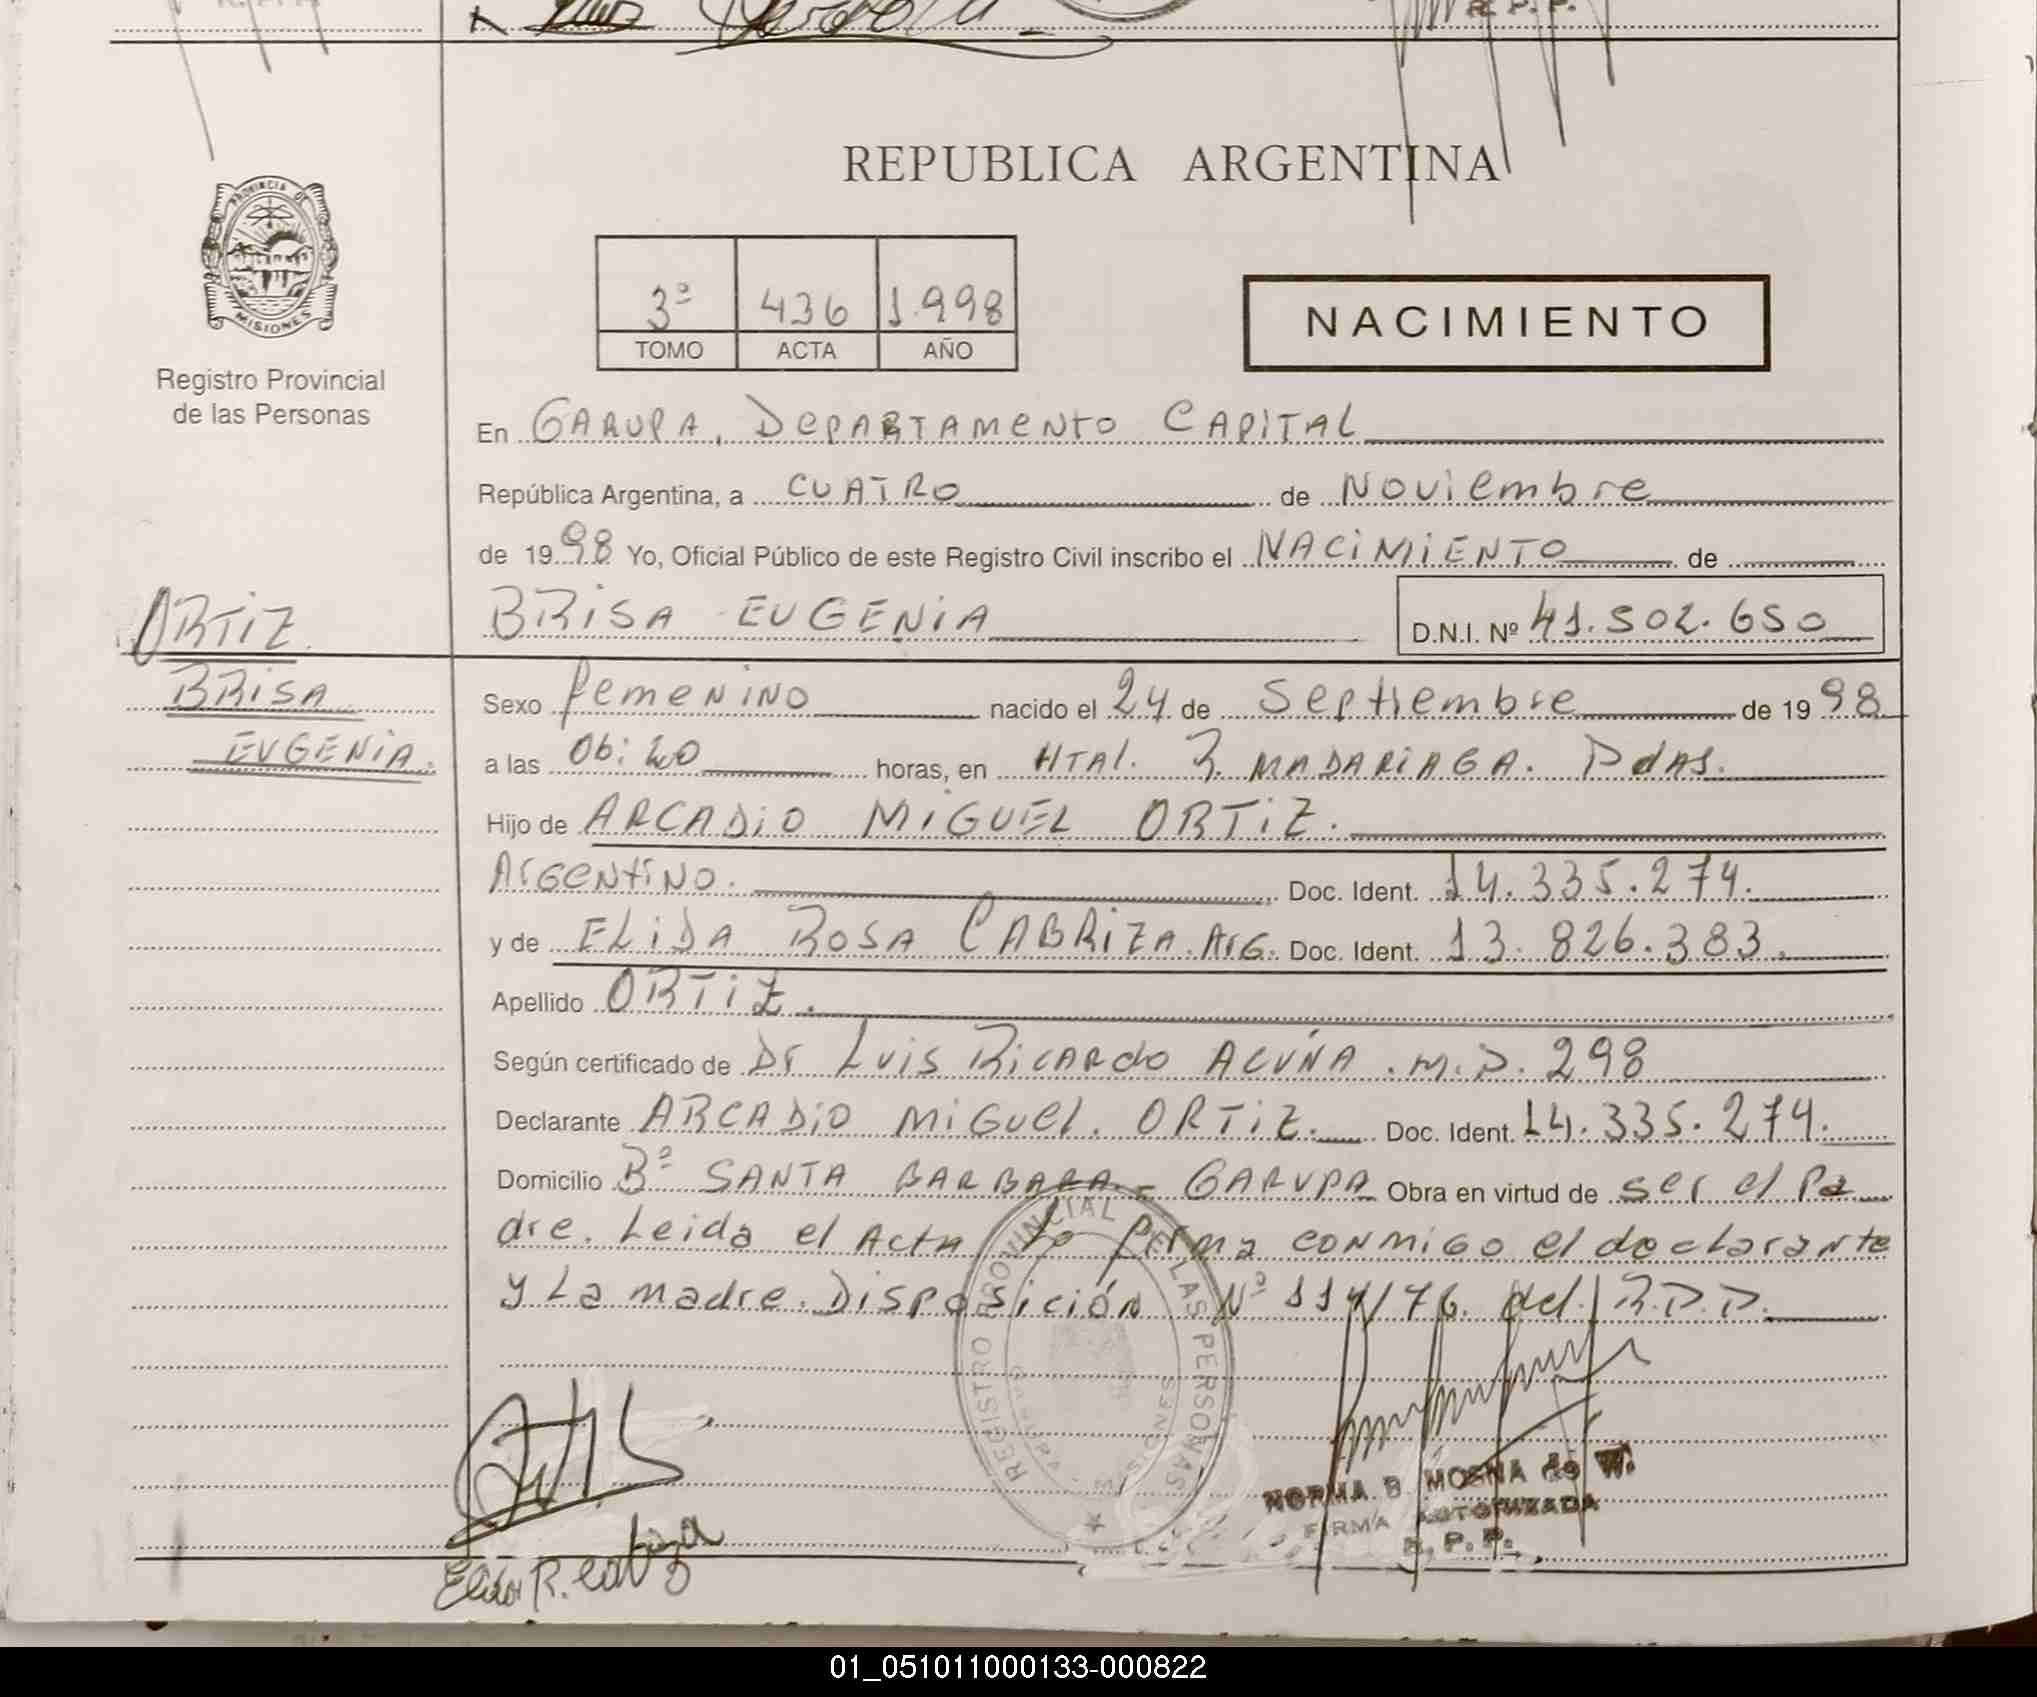 R. P. P.
REPUBLICA ARGENTINA
PROVINCIA DE
MISIONES
Registro Provincial
de las Personas
3º 436 1.998
TOMO ACTA AÑO
NACIMIENTO
En GARUPA, DEPARTAMENTO CAPITAL
República Argentina, a CUATRO de Noviembre
de 1998 Yo, Oficial Público de este Registro Civil inscribo el NACIMIENTO de
ORTIZ
BRISA EUGENIA D.N.I. Nº 41.502.650
BRISA
EUGENIA.
Sexo femenino nacido el 24 de Septiembre de 1998
a las 06:20 horas, en HTAL. R. MADARIAGA. Pdas.
Hijo de ARCADIO MIGUEL ORTIZ.
Argentino. Doc. Ident. 14.335.274.
y de ELIDA ROSA CABRIZA. Arg. Doc. Ident. 13.826.383.
Apellido ORTIZ.
Según certificado de Dr Luis Ricardo ACUÑA. M.P. 298
Declarante ARCADIO MIGUEL. ORTIZ. Doc. Ident. 14.335.274.
Domicilio Bº SANTA BARBARA - GARUPA Obra en virtud de ser el Pa
dre. Leida el Acta La firma conmigo el declarante
y La madre. Disposición Nº 114/76. del R.P.P.
REGISTRO PROVINCIAL DE LAS PERSONAS
MISIONES
NORMA B. MOSNA de W.
FIRMA AUTORIZADA
R. P. P.
Elida R. Cabriza
01_051011000133-000822